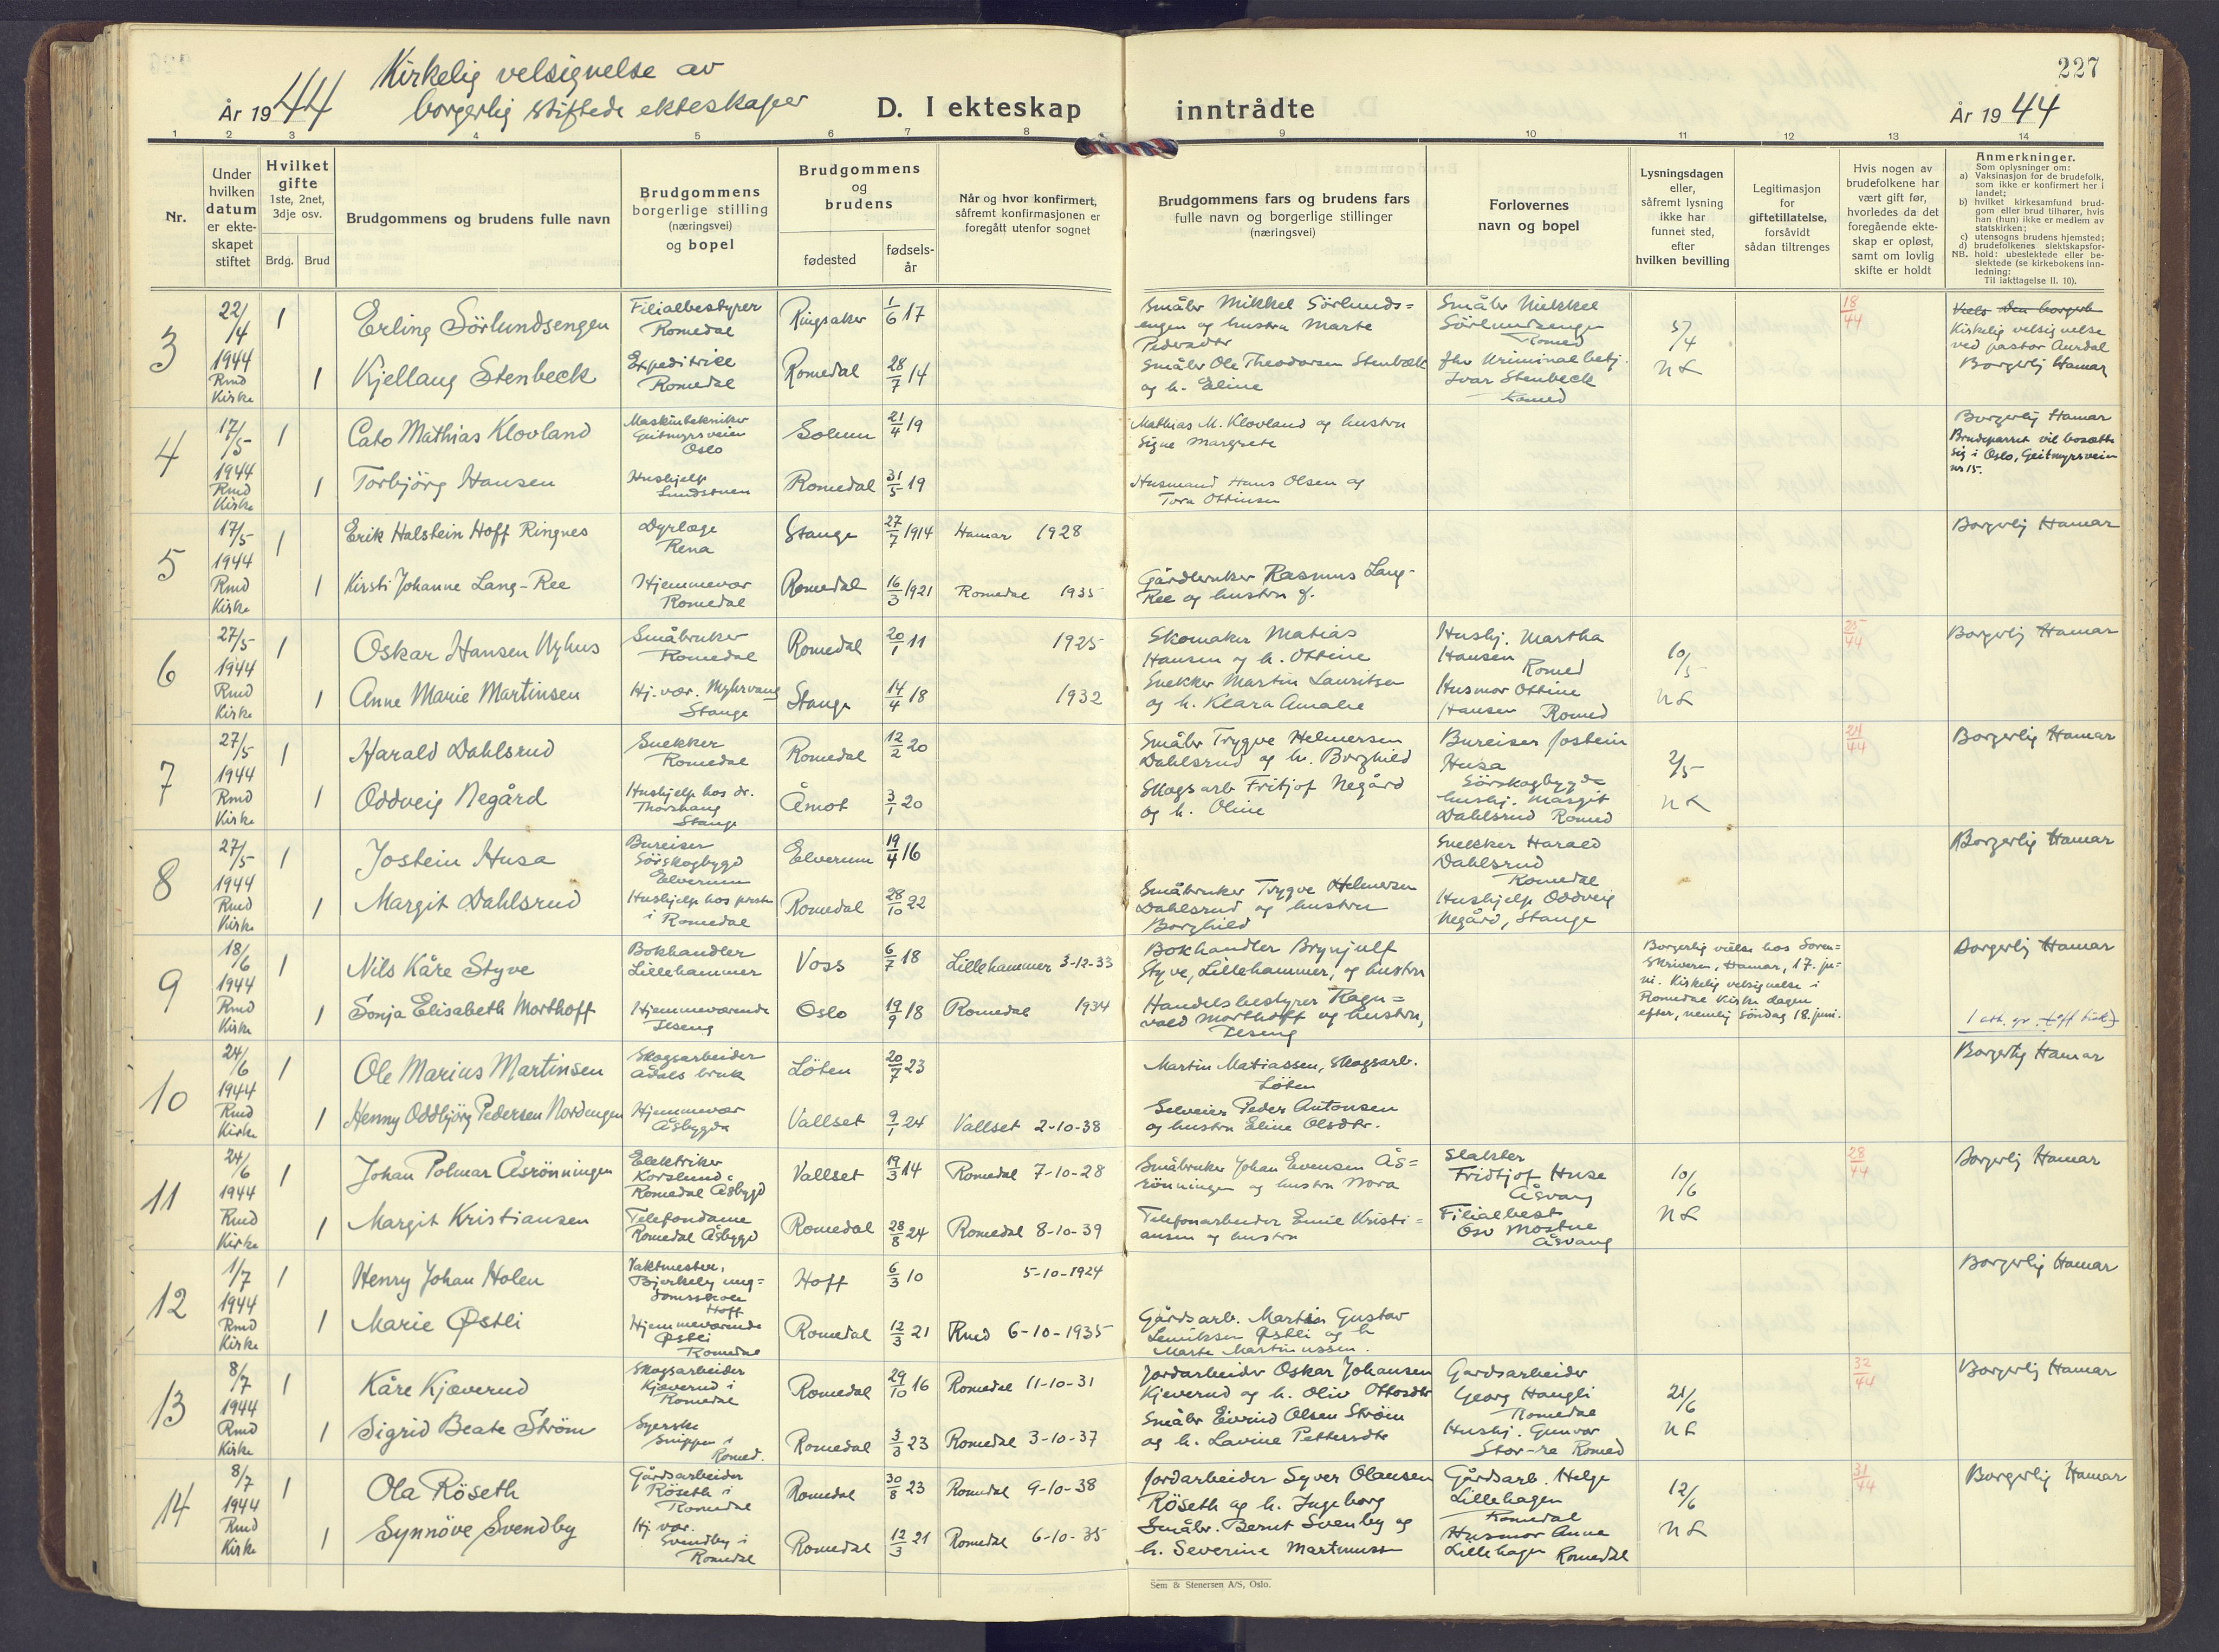 Kirkelig velsignelse av
borgerlig stiftede ekteskaper
År 1944
D. I ekteskap inntrådte
227
År 1944
1 2 3 4 5 6 7 8 9 10 11 12 13 14
Nr.
Under hvilken datum er ekteskapet stiftet
Hvilket gifte 1ste, 2net, 3dje osv.
Brdg. Brud
Brudgommens og brudens fulle navn
Brudgommens borgerlige stilling (næringsvei) og bopel
Brudgommens og brudens
fødested
fødselsår
Når og hvor konfirmert, såfremt konfirmasjonen er foregått utenfor sognet
Brudgommens fars og brudens fars fulle navn og borgerlige stillinger (næringsvei)
Forlovernes navn og bopel
Lysningsdagen eller, såfremt lysning ikke har funnet sted, efter hvilken bevilling
Legitimasjon for giftetillatelse, forsåvidt sådan tiltrenges
Hvis nogen av brudefolkene har vært gift før, hvorledes da det foregående ekteskap er opløst, samt om lovlig skifte er holdt
Anmerkninger.
Som oplysninger om:
a) Vaksinasjon for de brudefolk, som ikke er konfirmert her i landet;
b) hvilket kirkesamfund brudgom eller brud tilhører, hvis han (hun) ikke er medlem av statskirken;
c) utensogns brudens hjemsted;
d) brudefolkenes slektskapsforhold: ubeslektede eller beslektede (se kirkebokens innledning:
NB.
Til iakttagelse II. 10).
3
22/4 1944 Rmd Kirke
1 Erling Sörlundsengen
Filialbestyrer Romedal
Ringsaker 1/6 17
Småbr Mikkel Sörlunds=
engen og hustru Marte
Pedersdtr
Småbr Mikkel
Sörlundsengen
Romed
5/4
18/44
Kirkelig velsignelse
ved pastor Aurdal
Borgerlig Hamar
1 Kjellaug Stenbeck
Expeditrise Romedal
Romedal 28/7 14
Småbr Ole Theodorsen Stenbæk
og h. Eline
fhv Kriminalbetj.
Ivar Stenbeck
Romed
4
17/5 1944 Rmd Kirke
1 Cato Mathias Klovland
Maskintekniker
Geitmyrsveien
Oslo
Solum 21/4 19
Mathias M. Klovland og hustru
Signe Margrete
Borgerlig Hamar
Brudeparret vil bosætte
sig i Oslo, Geitmyrsveien
nr 15.
1 Torbjörg Hansen
Hushjelp
Romedal 31/5 19
Husmand Hans Olsen og
Tora Ottinsen
5
17/5 1944 Rmd Kirke
1 Erik Halstein Hoff Ringnes
Dyrlæge
Rena
Stange 27/7 1914 Hamar 1928
Borgerlig Hamar
1 Kirsti Johanne Lang-Ree
Hjemmevær
Romedal
Romedal 16/3 1921 Romedal 1935
Gårdbruker Rasmus Lang-
Ree og hustru f.
6
27/5 1944 Rmd Kirke
1 Oskar Hansen Nyhus
Småbruker
Romedal
Romedal 20/1 11 1925
Skomaker Matias
Hansen og h. Ottine
Hushj. Martha
Hansen
Romed
10/5
25/44
Borgerlig Hamar
1 Anne Marie Martinsen
Hj. vær. Myhrvang
Stange
Stange 14/4 18 1932
Snekker Martin Lauritsen
og h. Klara Amalie
Husmor Ottine
Hansen Romed
7
27/5 1944 Rmd Kirke
1 Harald Dahlsrud
Snekker
Romedal
Romedal 12/2 20
Småbr Trygve Helmersen
Dahlsrud og h. Borghild
Bureiser Jostein
Husa
Sörskogbygda
2/5
24/44
Borgerlig Hamar
1 Oddveig Negård
Hushjelp hos dr.
Thorshaug
Stange
Åmot 3/1 20
Skogsarb Fritjof Negård
og h. Oline
hushj. Margit
Dahlsrud Romed
8
27/5 1944 Rmd Kirke
1 Jostein Husa
Bureiser
Sörskogbygd
Elverum
Elverum 19/4 16
Snekker Harald
Dahlsrud
Romedal
Borgerlig Hamar
1 Margit Dahlsrud
Hushjelp hos
i Romedal
Romedal 28/10 22
Småbruker Trygve Helmersen
Dahlsrud og hustru
Borghild
Hushjelp Oddveig
Negård, Stange
9
18/6 1944 Rmd Kirke
1 Nils Kåre Styve
Bokhandler
Lillehammer
Voss 6/7 18 Lillehammer 3-12-33
Bokhandler Brynjulf
Styve, Lillehammer, og hustru
Borgerlig vielse hos Soren=
skriveren, Hamar, 17. ju=
ni. Kirkelig velsignelse i
Romedal Kirke dagen
efter, nemlig söndag 18. juni.
Borgerlig Hamar
1 Sonja Elisabeth Morthoff
Hjemmeværende
Ilseng
Oslo 19/9 18 Romedal 1934
Handelsbestyrer Ragn=
vald Morthoff og hustru,
Ilseng
10
24/6 1944 Rmd Kirke
1 Ole Marius Martinsen
Skogsarbeider
Ådals bruk
Löten 20/7 23
Martin Matiassen, skogsarb.
Löten
Borgerlig Hamar
1 Henny Oddbjörg Pedersen Nordengen
Hjemmevær
Åsbygda
Vallset 9/1 24 Vallset 2-10-38
Selveier Peder Antonsen
og hustru Eline Olsdtr.
11
24/6 1944 Rmd Kirke
1 Johan Polmar Åsrönningen
Elektriker
Korslund i
Romedal Åsbygd
Vallset 19/3 14 Romedal 7-10-28
Småbruker Johan Evensen Ås=
rönningen og hustru Nora
Slakter
Fridtjof Huse
Åsvang
10/6
28/44
Borgerlig Hamar
1 Margit Kristiansen
Telefondame
Romedal Åsbygd
Romedal 28/8 24 Romedal 8-10-39
Telefonarbeider Emil Kristi=
ansen og hustru
Filialbest.
Osv Mostue
Åsvang
12
1/7 1944 Rmd Kirke
1 Henry Johan Holen
Vaktmester,
Bjerkely ung=
domsskole
Hoff
Hoff 6/3 10 5-10-1924
Borgerlig Hamar
1 Marie Østli
Hjemmeværende
Østli
Romedal
Romedal 12/3 21 Rmd 6-10-1935
Gårdsarb. Martin Gustav
Østli og h
Marte Martinussen.
13
8/7 1944 Rmd Kirke
1 Kåre Kjæverud
Skogsarbeider
Kjæverud i
Romedal
Romedal 29/10 16 Romedal 11-10-31
Jordarbeider Oskar Johansen
Kjeverud og h. Oliv Ottosdtr
Gardsarbeider
Georg Haugli
Romedal
21/6
32/44
Borgerlig Hamar
1 Sigrid Beate Ström
Syerske
Snippen i
Romed.
Romedal 3/3 23 Romedal 3-10-37
Småbr Eivind Olsen Ström
og h. Lavine Pettersdtr
Hushj. Gunvor
Stor-re Romed
14
8/7 1944 Rmd Kirke
1 Ola Röseth
Gårdsarbeider
Röseth i
Romedal
Romedal 30/8 23 Romedal 9-10-38
Jordarbeider Syver Olausen
Röseth og h. Ingeborg
Gårdsarb. Helge
Lillehagen
Romedal
12/6
31/44
Borgerlig Hamar
1 Synnöve Svendby
Hj. vær.
Svendby i
Romedal
Romedal 12/3 21 Romedal 6-10-35
Småbr. Bernt Svenby og
h. Severine Martinuss
Husmor Anna
Lillehagen Romedal
Sem & Stenersen A/S, Oslo.